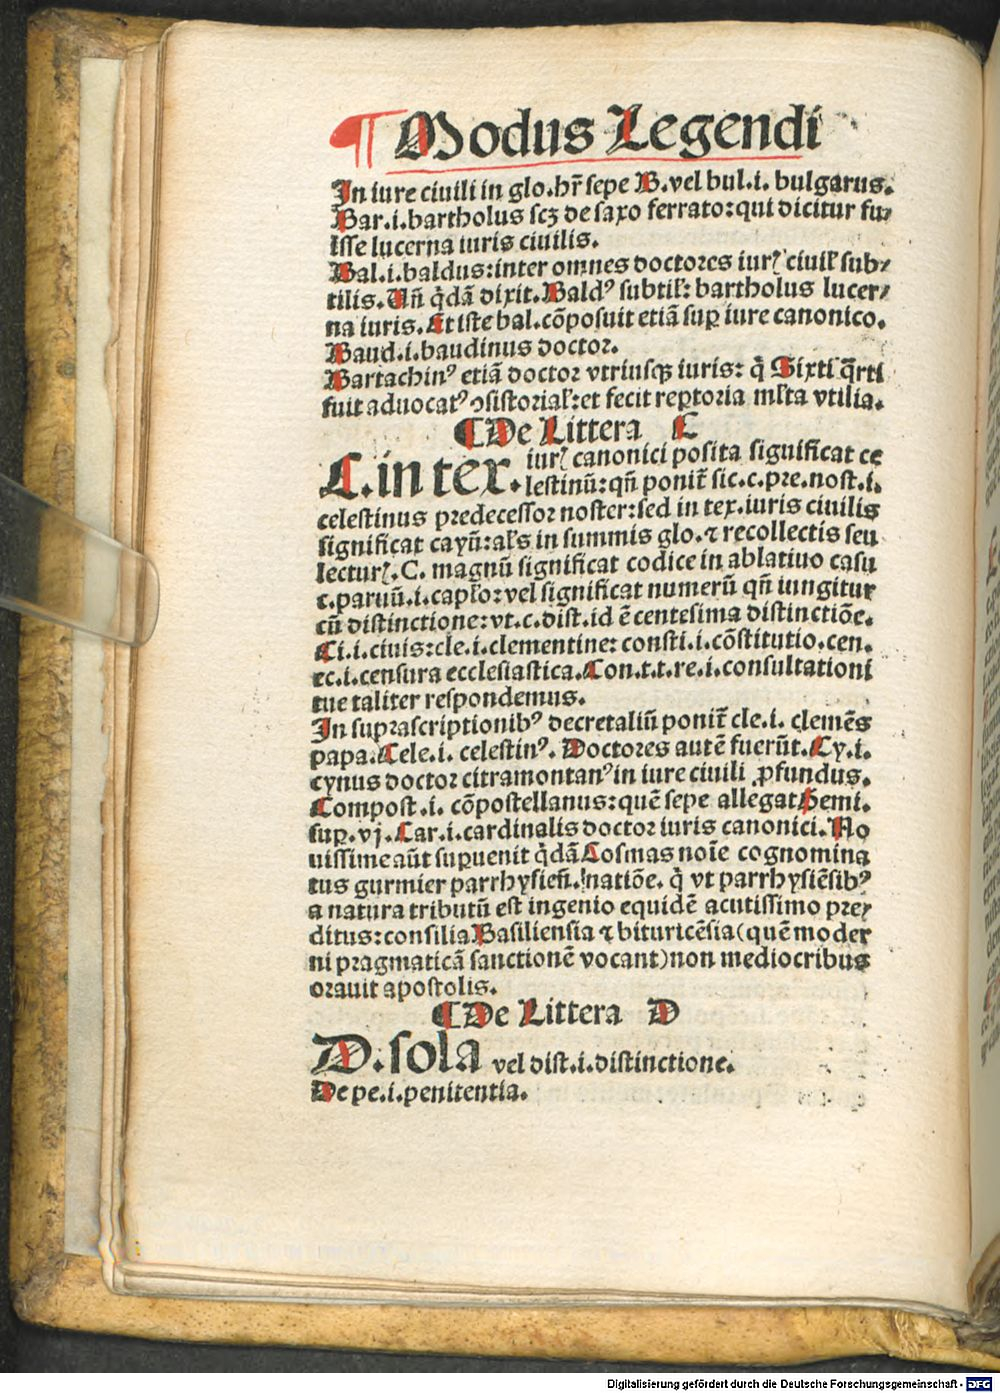 ¶ Modus Legendi
In iure ciuili in glo.hr̃ sepe B.vel bul.i. bulgarus.
Bar.i.bartholus scȝ de saxo ferrato:qui dicitur fu⸗
isse lucerna iuris ciuilis.
Bal.i.baldus:inter omnes doctores iurꝭ ciuiľ sub⸗
tilis.Uñ q̃dã dixit.Baldꝰ subtiľ: bartholus lucer⸗
na iuris.Et iste bal.cõposuit etiã suꝑ iure canonico.
Baud.i.baudinus doctor.
Bartachinꝰ etiã doctor vtriusqꝫ iuris: q̃ Sixti q̃rti
fuit aduocatꝰ ꝯsistoriaľ:et fecit reꝑtoria mľta vtilia.
¶De Littera C
C.in tex. iurꝭ canonici posita significat ce
lestinũ:qñ ponit̃ sic.c.pre.nost.i.
celestinus predecessor noster:sed in tex.iuris ciuilis
significat cayũ:aľs in summis glo.⁊ recollectis seu
lecturꝭ.C. magnũ significat codice in ablatiuo casu
c.paruũ.i.capľo:vel significat numerũ qñ iungitur
cũ distinctione:vt.c.dist.id ẽ centesima distinctiõe.
Ci.i.ciuis:cle.i.clementine:consti.i.cõstitutio.cen.
ec.i.censura ecclesiastica.Con.t.t.re.i.consultationi
tue taliter respondemus.
In suprascriptionibꝰ decretaliũ ponit̃ cle.i. clemẽs
papa.Cele.i. celestinꝰ. Doctores autẽ fuerũt.Cy.i.
cynus doctor citramontanꝰ in iure ciuili ꝓfundus.
Compost.i. cõpostellanus:quẽ sepe allegat Hemi.
suꝑ.vj.Car.i.cardinalis doctor iuris canonici.No
uissime aũt suꝑuenit q̃dã Cosmas noĩe cognomina
tus gurmier parrhysieñ. natiõe. q̃ vt parrhysiẽsibꝰ
a natura tributũ est ingenio equidẽ acutissimo pre⸗
ditus:consilia Basiliensia ⁊ bituricẽsia(quẽ moder
ni pragmaticã sanctionẽ vocant)non mediocribus
orauit apostolis.
¶De Littera D
D.sola vel dist.i.distinctione.
De pe.i.penitentia.
Digitalisierung gefördert durch die Deutsche Forschungsgemeinschaft - DFG